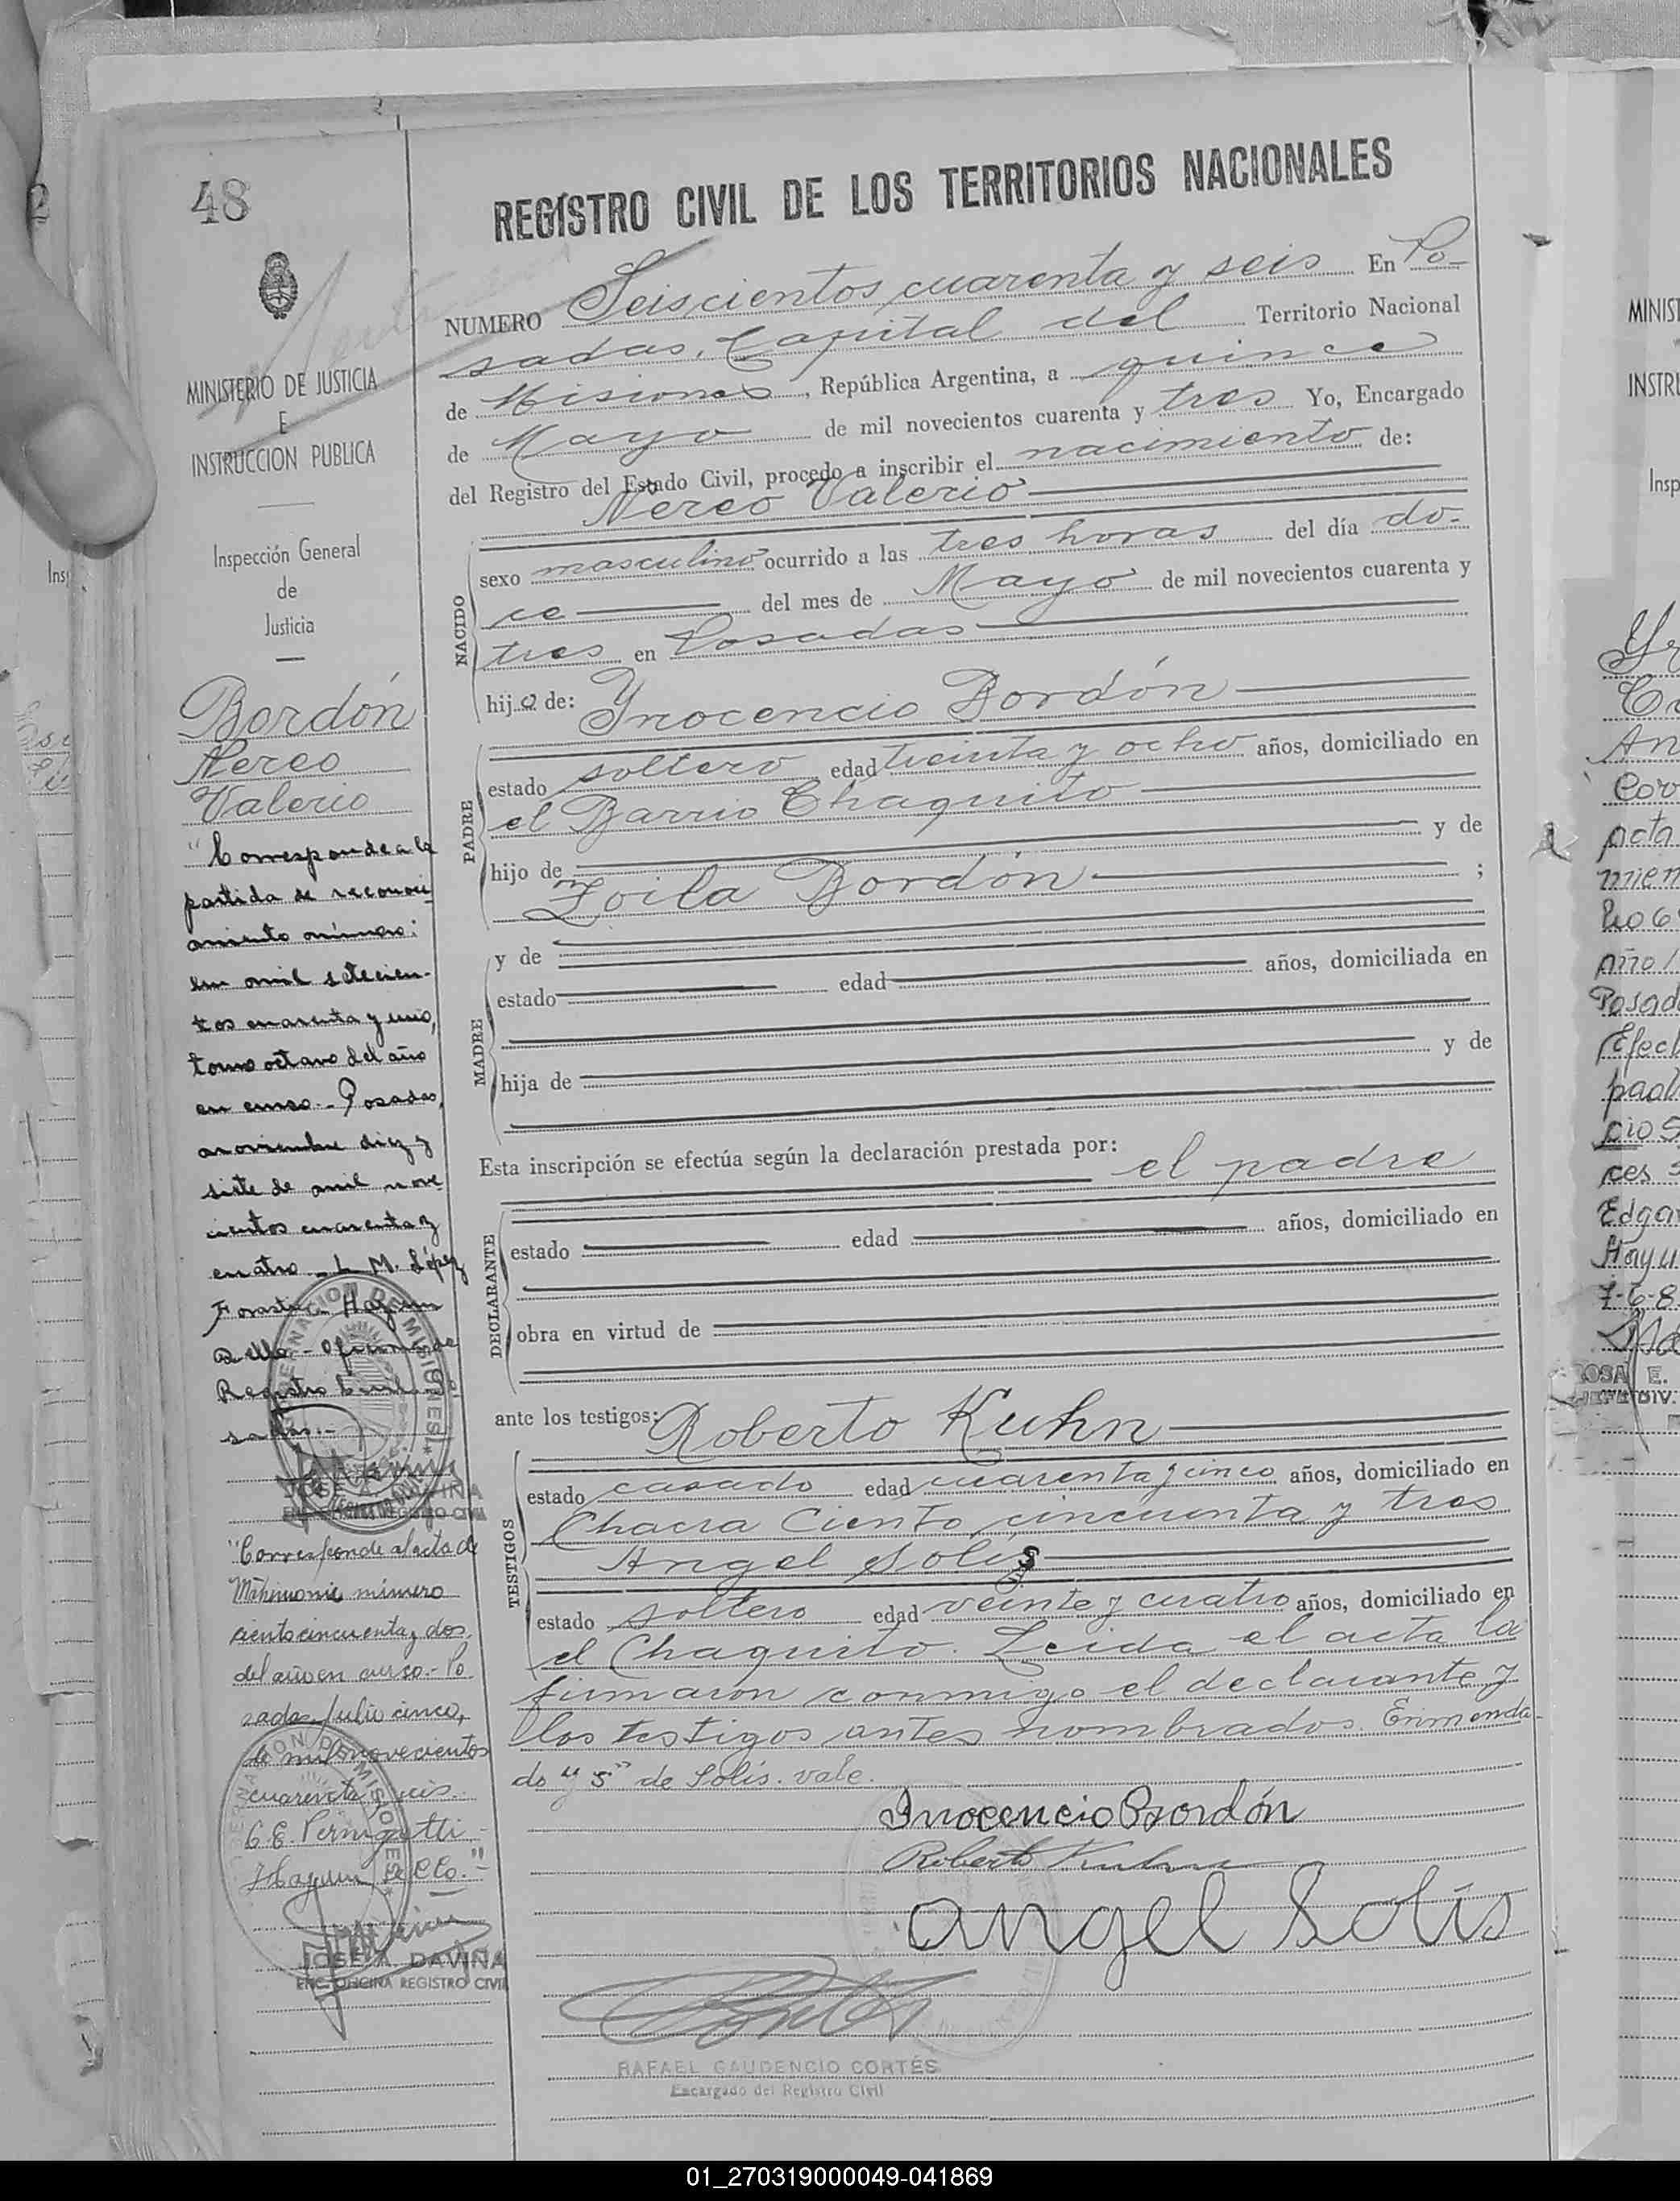 48
REGISTRO CIVIL DE LOS TERRITORIOS NACIONALES
NUMERO Seiscientos cuarenta y seis En Po-
sadas, Capital del Territorio Nacional
de Misiones, República Argentina, a quince
de Mayo de mil novecientos cuarenta y tres Yo, Encargado
del Registro del Estado Civil, procedo a inscribir el nacimiento de:
Nereo Valerio
NACIDO
sexo masculino ocurrido a las tres horas del día do-
ce del mes de Mayo de mil novecientos cuarenta y
tres en Posadas
hijo de: Ynocencio Bordón
PADRE
estado soltero edad treinta y ocho años, domiciliado en
el Barrio Chaquito
hijo de y de
Zoila Bordón ;
MADRE
y de
estado edad años, domiciliada en
hija de y de
Esta inscripción se efectúa según la declaración prestada por: el padre
DECLARANTE
estado edad años, domiciliado en
obra en virtud de
ante los testigos: Roberto Kuhn
TESTIGOS
estado casado edad cuarenta y cinco años, domiciliado en
Chacra Ciento cincuenta y tres
Angel Solís
estado soltero edad veinte y cuatro años, domiciliado en
el Chaquito. Leida el acta la
firmaron conmigo el declarante y
los testigos antes nombrados. Enmenda-
do "s" de Solís. vale.
Inocencio Bordón
Roberto Kuhn
angel Solís
RAFAEL GAUDENCIO CORTÉS
Encargado del Registro Civil
MINISTERIO DE JUSTICIA
E
INSTRUCCION PUBLICA
Inspección General
de
Justicia
Bordón
Nereo
Valerio
"Corresponde a la
partida de reconoci
miento número:
un mil setecien-
tos cuarenta y uno,
tomo octavo del año
en curso.- Posadas,
noviembre diez y
siete de mil nove
cientos cuarenta y
cuatro - L. M. López
Forastier. Haymn
D. Ello - Oficina de
Registro Civil Po
sadas.-
GOBERNACION DE MISIONES
JOSE A. DAVIÑA
ENC. OFICINA REGISTRO CIVIL
"Corresponde al acta de
Matrimonio número
ciento cincuenta y dos
del año en curso.- Po
sadas, Julio cinco,
de mil novecientos
cuarenta y seis.
C. E. Pernigotti
GOBERNACION DE MISIONES
JOSE A. DAVIÑA
ENC. OFICINA REGISTRO CIVIL
MINIST
INSTRU
Insp
An
Cor
acta
mien
Posad
Efect
padr
cio S
ces
Edgar
Hay u
7-6-8
ROSA E.
JEFE DIV.
01_270319000049-041869